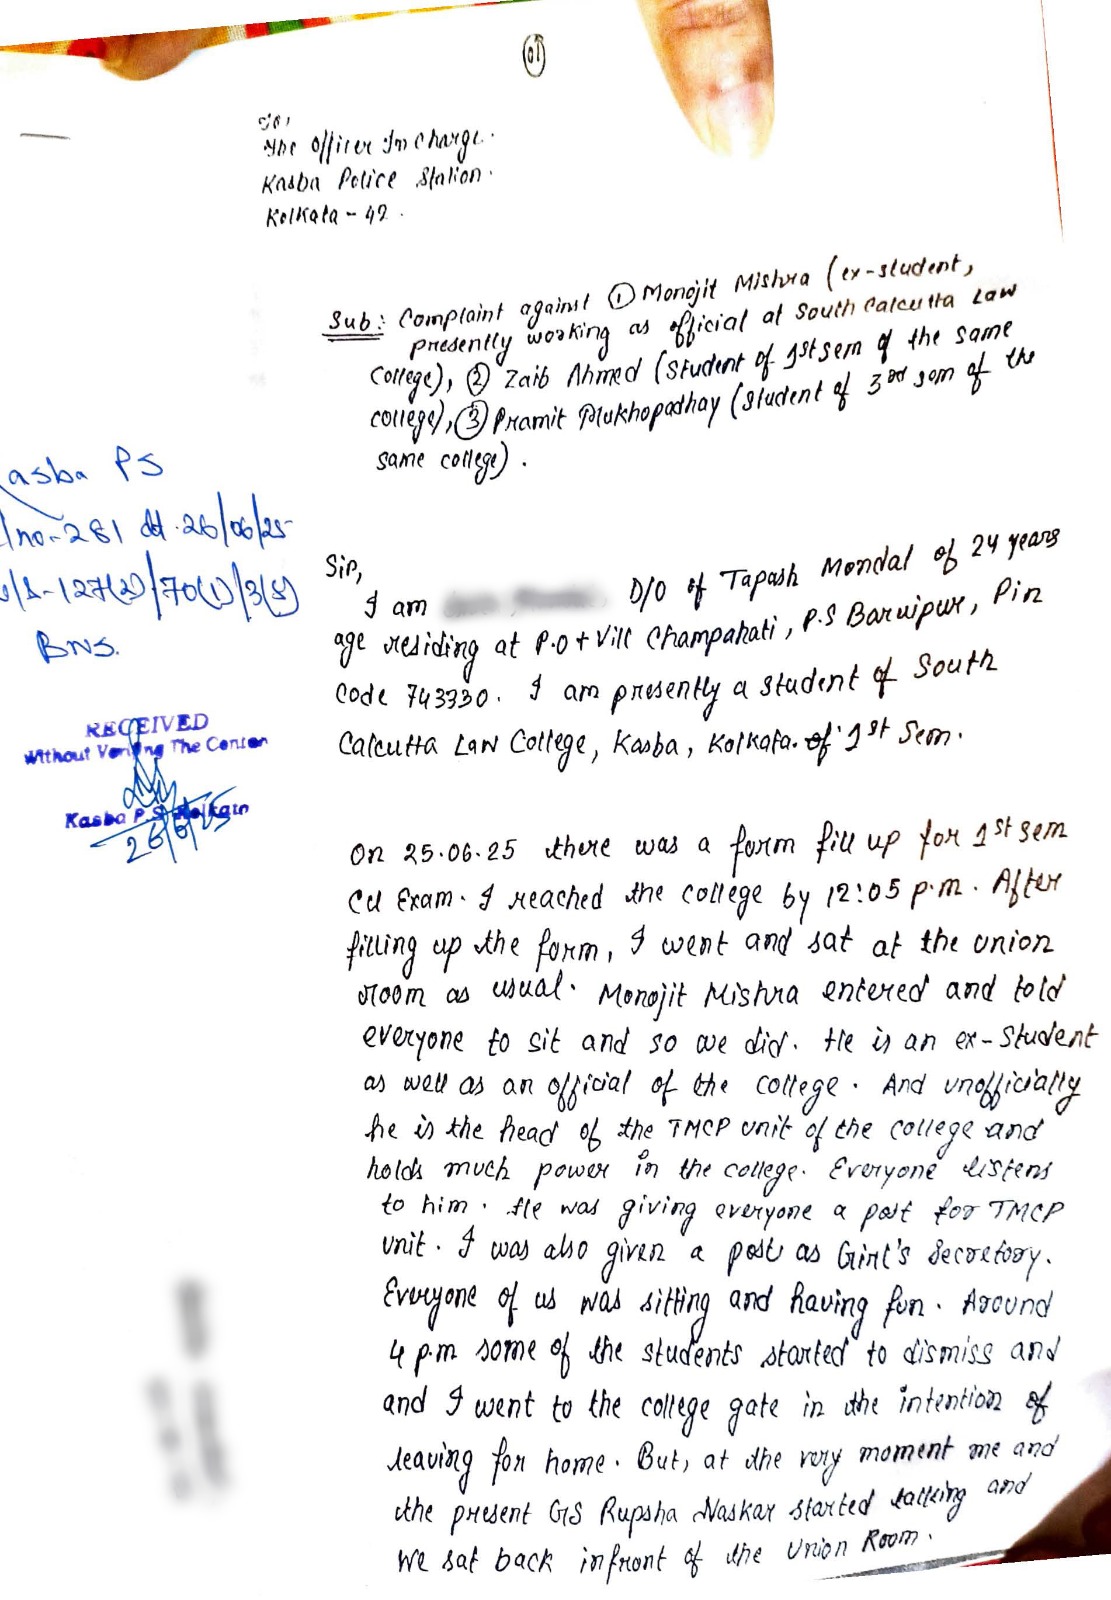 01
To,
The Officer In Charge.
Kasba Police Station.
Kolkata - 42.
Sub: Complaint against ① Monojit Mishra (ex-student,
presently working as official at South Calcutta Law
College), ② Zaib Ahmed (Student of 1st sem of the same
college), ③ Pramit Mukhopadhay (Student of 3rd sem of the
same college).
asba PS
no-281 dt 26/06/25
127(2)/70(1)/3(5)
BNS.
RECEIVED
Without Verifying The Conten
Kasba P.S. Kolkata
26/6/25
Sir,
I am D/O of Tapash Mondal of 24 years
age residing at P.O + Vill Champahati, P.S Baruipur, Pin
Code 743330. I am presently a student of South
Calcutta Law College, Kasba, Kolkata. of 1st Sem.
On 25.06.25 there was a form fill up for 1st sem
CU Exam. I reached the college by 12:05 p.m. After
filling up the form, I went and sat at the union
room as usual. Monojit Mishra entered and told
everyone to sit and so we did. He is an ex-Student
as well as an official of the college. And unofficially
he is the head of the TMCP unit of the college and
holds much power in the college. Everyone listens
to him. He was giving everyone a post for TMCP
unit. I was also given a post as Girl's Secretory.
Everyone of us was sitting and having fun. Around
4 p.m some of the students started to dismiss and
and I went to the college gate in the intention of
leaving for home. But, at the very moment me and
the present GS Rupsha Naskar started talking and
we sat back infront of the Union Room.